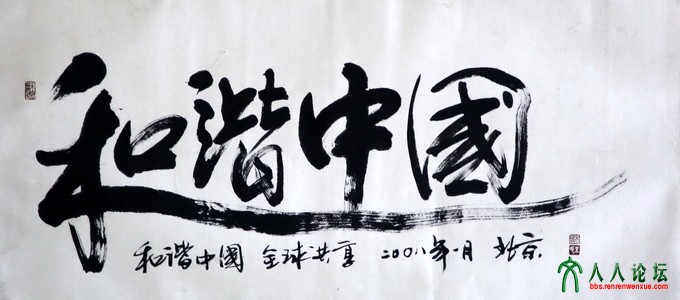 和谐中國
和谐中國 全球共享 二〇〇八年一月 北京
人人论坛
bbs.renrenwenxue.com